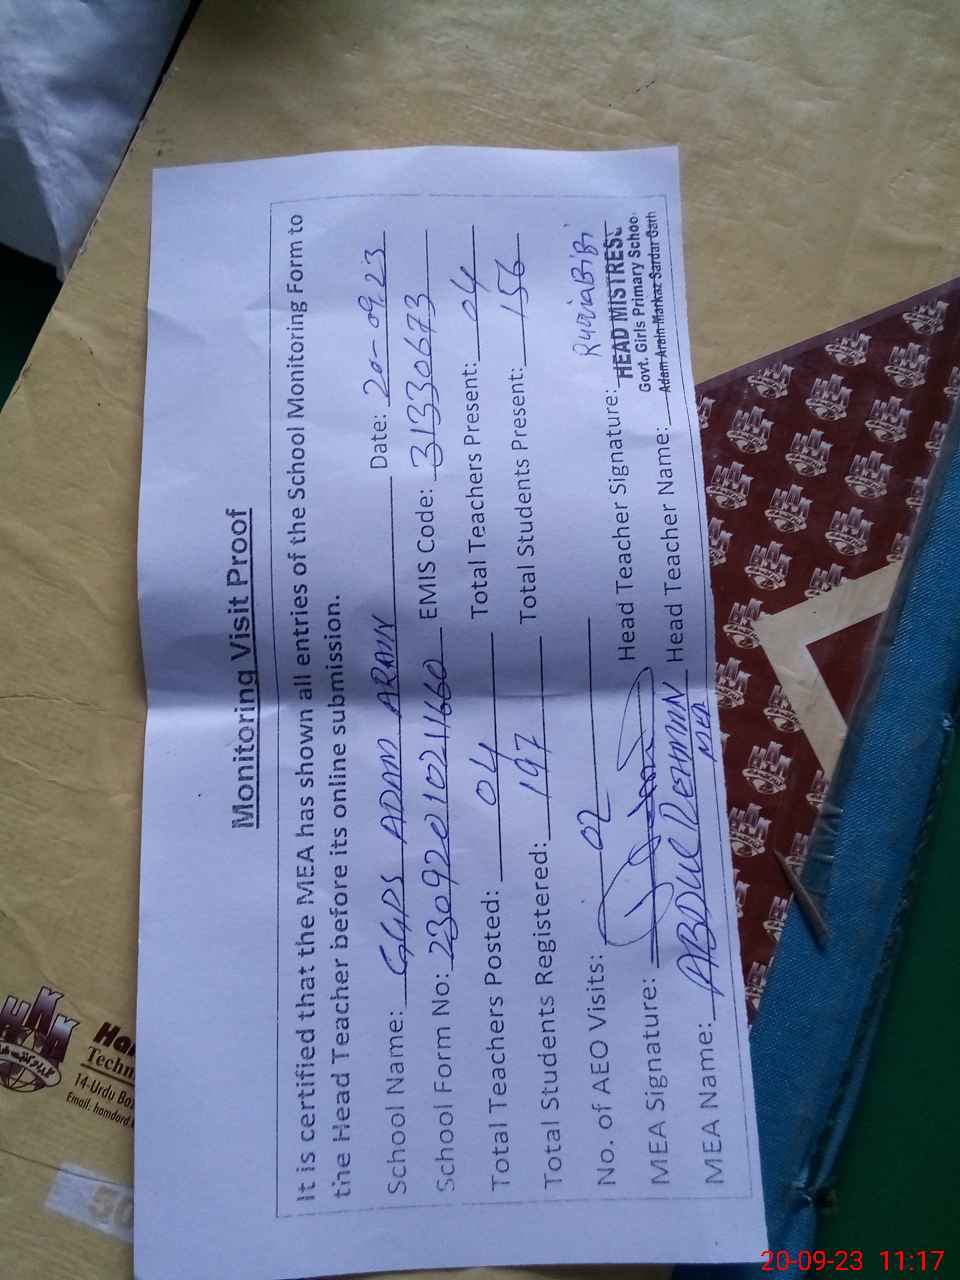 Monitoring Visit Proof
It is certified that the MEA has shown all entries of the School Monitoring Form to
the Head Teacher before its online submission.
School Name: GGPS ADAM ARAIN Date: 20-09.23
School Form No: 23092010211660 EMIS Code: 31330673
Total Teachers Posted: 04 Total Teachers Present: 04
Total Students Registered: 197 Total Students Present: 156
No. of AEO Visits: 02
MEA Signature: Head Teacher Signature: RuqiaBiBi
HEAD MISTRESS
Govt. Girls Primary School
Adam Arain Markaz Sardar Garh
MEA Name: ABDUL REHMAN Head Teacher Name:
MEA
HKK
Techn
14-Urdu Baz
Email: hamdard
50
20-09-23 11:17